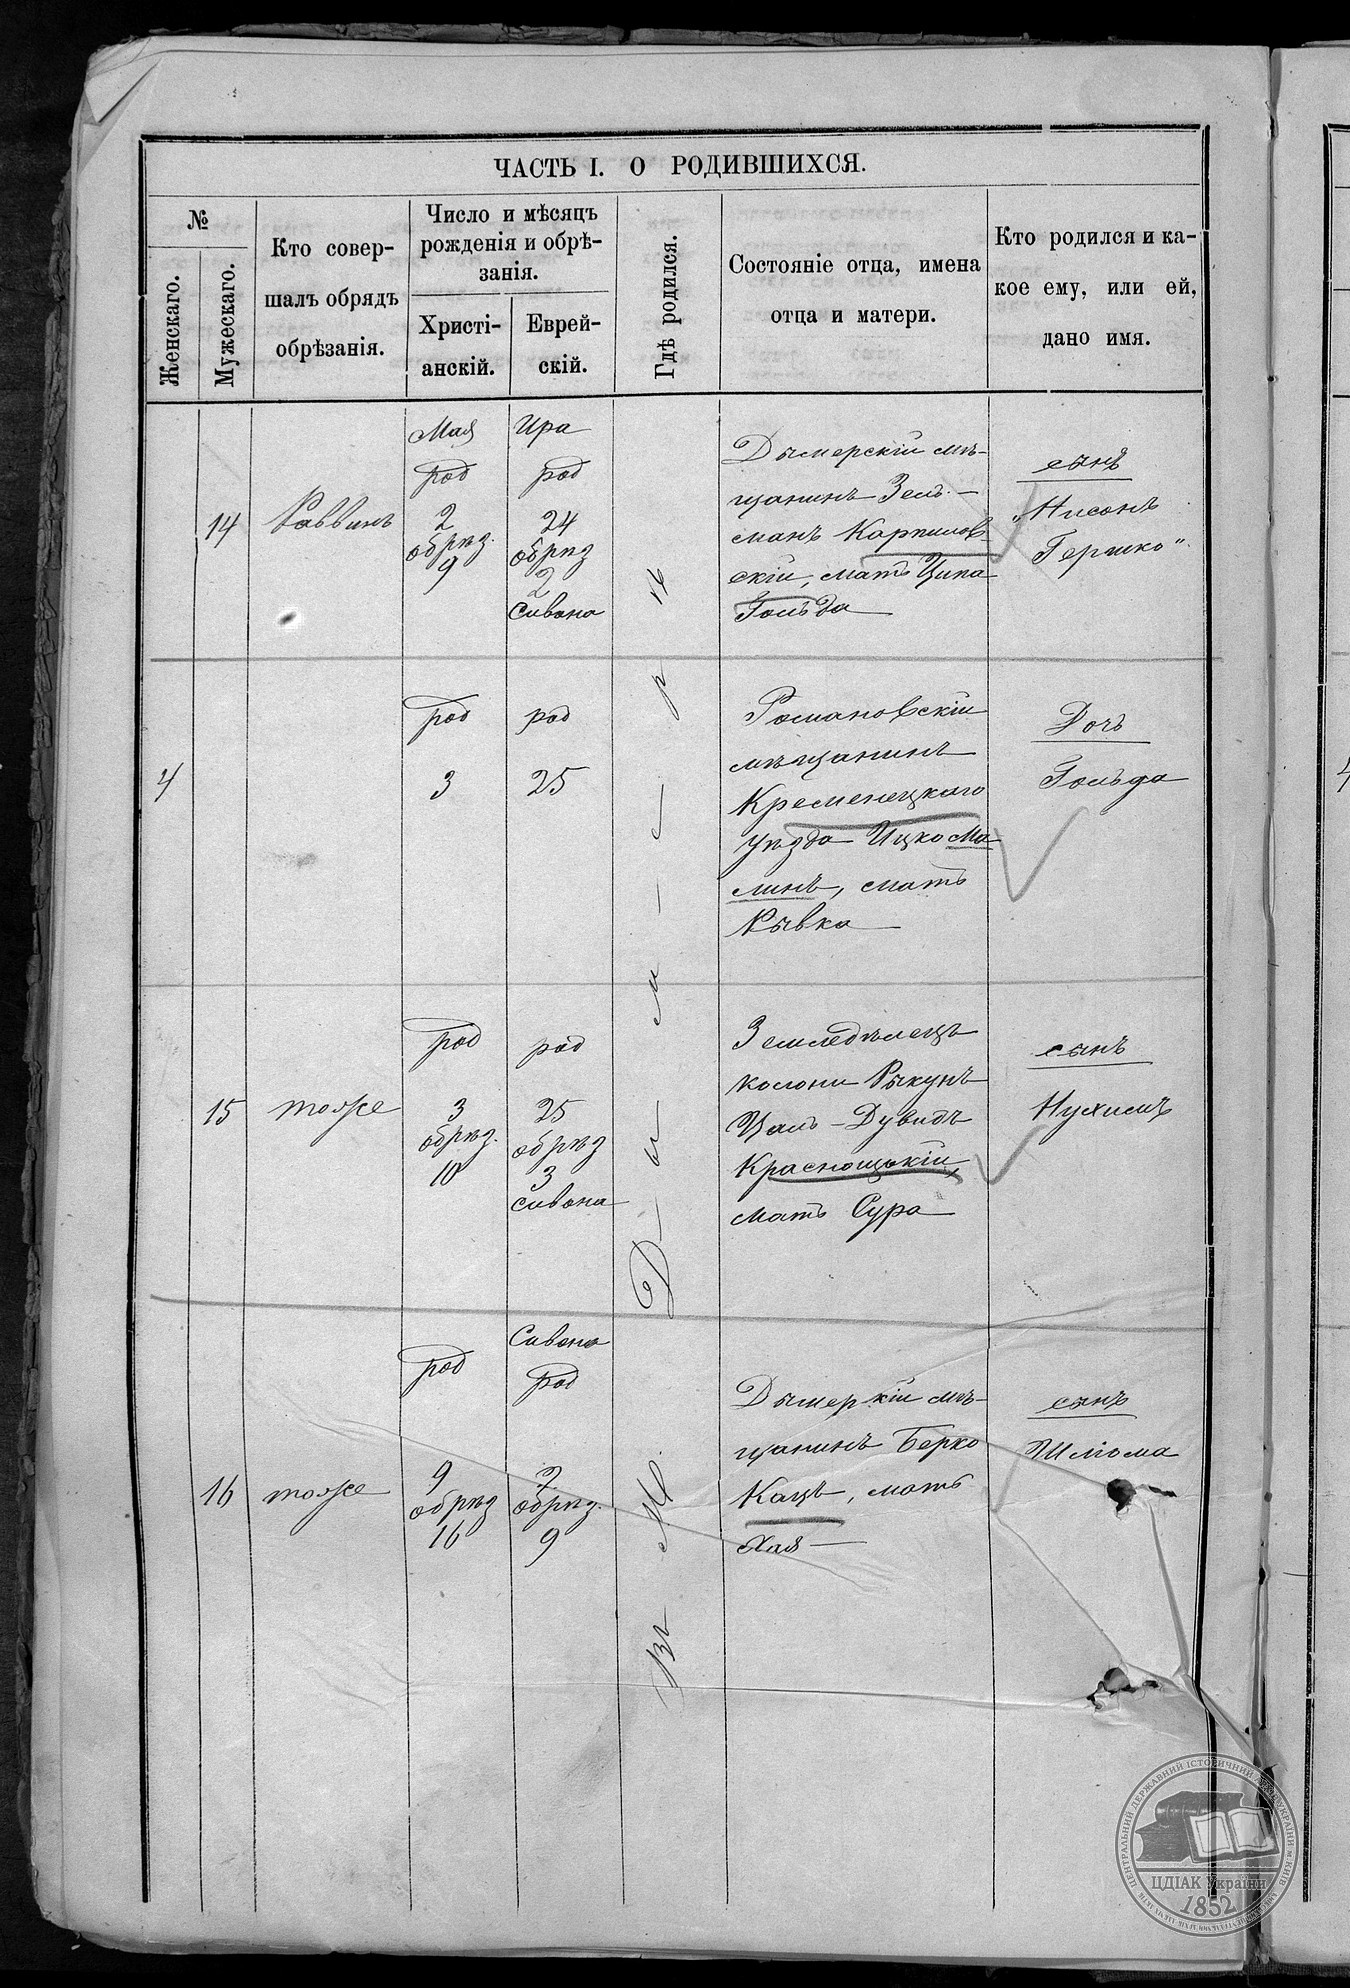 ЧАСТЬ I. О РОДИВШИХСЯ.
№
Женскаго.
Мужескаго.
Кто совер-
шалъ обрядъ
обрѣзанія.
Число и мѣсяцъ
рожденія и обрѣ-
занія.
Христі-
анскій.
Еврей-
скій.
Гдѣ родился.
Состояніе отца, имена
отца и матери.
Кто родился и ка-
кое ему, или ей,
дано имя.
14
Раввинъ
Мая
род
2
обрѣз.
9
Ира
род
24
обрѣз
2
Сивона
Дымерскій мѣ-
щанинъ Зель-
манъ Карпилов-
скій, мать Ципа
Гольда
сынъ
„Нисонъ
Гершко"
4
род
3
род
25
Романовскій
мѣщанинъ
Кременецкаго
уѣзда Ицко Ма
линъ, мать
Рывка
Дочь
Гольда
15
тоже
род
3
обрѣз.
10
род
25
обрѣз
3
сивона
Земледѣлецъ
колони Рыкунъ
Цаль-Дувидъ
Красноцькій,
мать Сура
сынъ
Нухимъ
16
тоже
род
9
обрѣз
16
Сивона
род
2
обрѣз.
9
Дымеркій мѣ-
щанинъ Берко
Кацъ, мать
Хая
сынъ
Шліома
Въ М. Дымерѣ
ЦЕНТРАЛЬНИЙ ДЕРЖАВНИЙ ІСТОРИЧНИЙ АРХІВ УКРАЇНИ м. КИЇВ
ЦДІАК України
1852